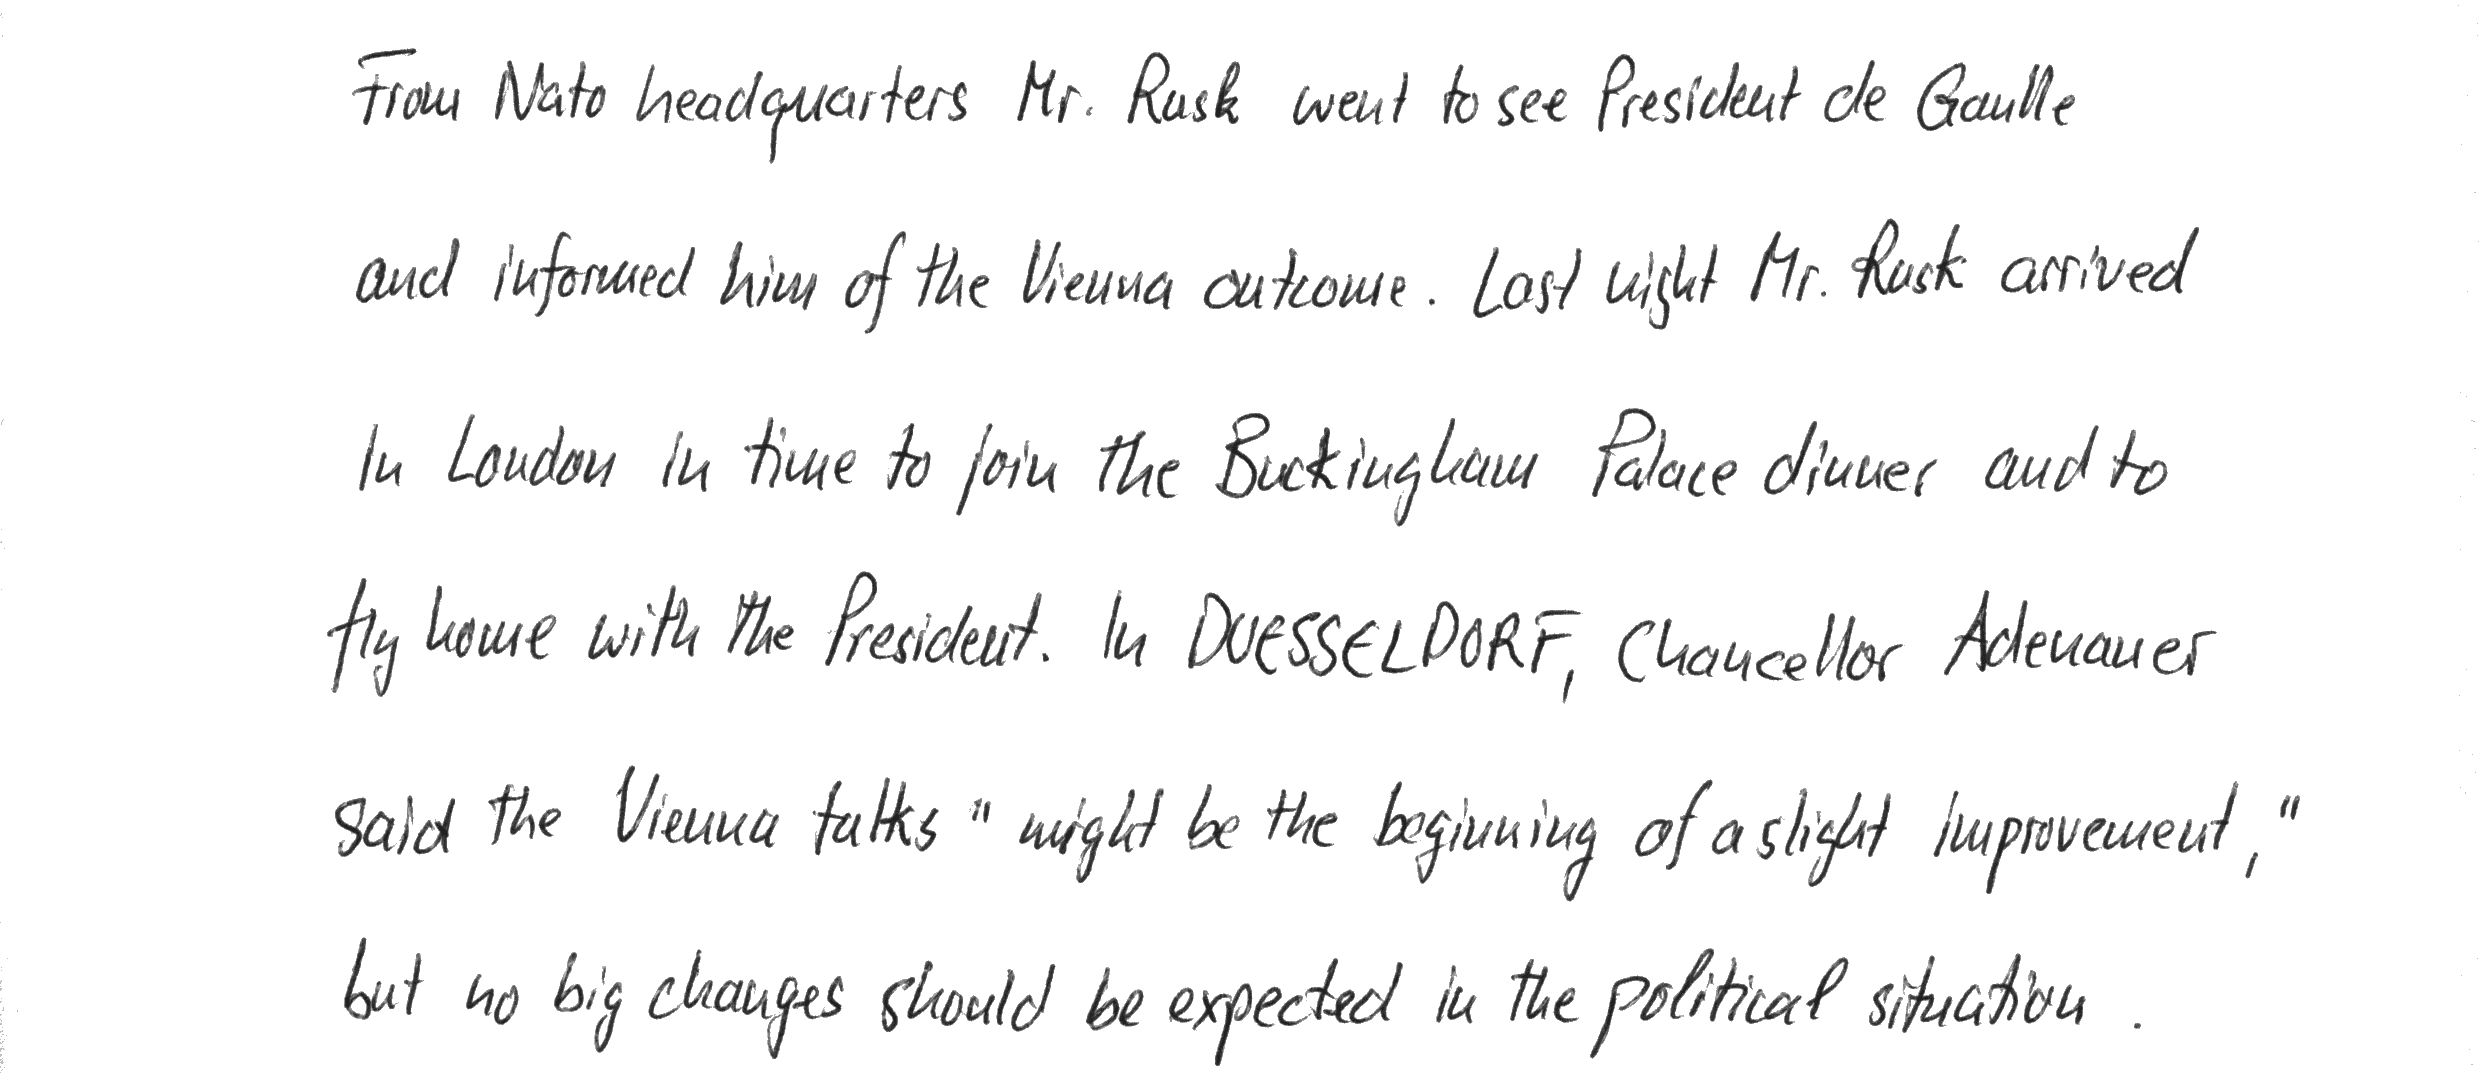 From Nato headquarters Mr. Rusk went to see President de Gaulle
and informed him of the Vienna outcome. Last night Mr. Rusk arrived
in London in time to join the Buckingham Palace dinner and to
fly home with the President. In DUESSELDORF, Chancellor Adenauer
said the Vienna talks "might be the beginning of a slight improvement,"
but no big changes should be expected in the political situation.